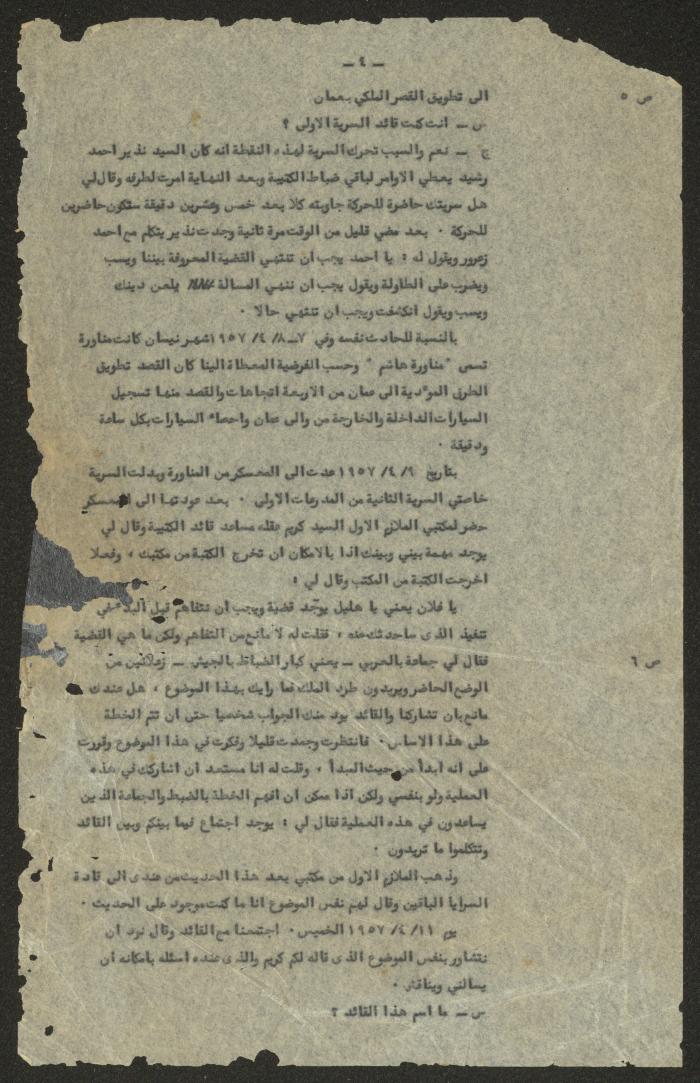 ـ ٤ ـ
الى تطويق القصر الملكي بعمان
ص ٥
س ـ انت كنت قائد السرية الاولى ؟
ج ـ نعم والسبب تحرك السرية لهذه النقطة انه كان السيد نذير احمد
رشيد يعطي الاوامر لباقي ضباط الكتيبة وبعد النهاية امرت لطرفه وقال لي
هل سريتك حاضرة للحركة جاوبته كلا بعد خمس وعشرين دقيقة ستكون حاضرين
للحركة ٠ بعد مضي قليل من الوقت مرة ثانية وجدت نذير يتكلم مع احمد
زعرور ويقول له : يا احمد يجب ان تنتهي القضية المعروفة بيننا ويسب
ويضرب على الطاولة ويقول يجب ان ننهي المسالة يلعن دينك
ويسب ويقول انكشفت ويجب ان تنتهي حالا ٠
بالنسبة للحادث نفسه وفي ٧ـ٨/ ٤/ ١٩٥٧ شهر نيسان كانت مناورة
تسمى "مناورة هاشم" وحسب الفرضية المعطاة الينا كان القصد تطويق
الطرق المؤدية الى عمان من الاربعة اتجاهات والقصد منها تسجيل
السيارات الداخلة والخارجة من والى عمان واحصاء السيارات بكل ساعة
ودقيقة ٠
بتاريخ ٩/ ٤/ ١٩٥٧ عدت الى المعسكر من المناورة وبدلت السرية
خاصتي السرية الثانية من المدرعات الاولى ٠ بعد عودتها الى المعسكر
حضر لمكتبي الملازم الاول السيد كريم عقله مساعد قائد الكتيبة وقال لي
يوجد مهمة بيني وبينك اذا بالامكان ان تخرج الكتبة من مكتبك ، وفعلا
اخرجت الكتبة من المكتب وقال لي :
يا فلان يعني يا هليل يوجد قضية ويجب ان نتفاهم قبل البدء في
تنفيذ الذى ساحدثك عنه ، فقلت له لا مانع من التفاهم ولكن ما هي القضية
فقال لي جماعة بالحربي ـ يعني كبار الضباط بالجيش ـ زعلانين من
ص ٦
الوضع الحاضر ويريدون طرد الملك فما رايك بهذا الموضوع ، هل عندك
مانع بان تشاركنا والقائد يود منك الجواب شخصيا حتى ان تتم الخطة
على هذا الاساس ٠ فانتظرت وجمدت قليلا وفكرت في هذا الموضوع وقررت
على انه ابدأ من حيث المبدأ ، وقلت له انا مستعد ان اشاركك في هذه
العملية ولو بنفسي ولكن اذا ممكن ان افهم الخطة بالضبط والجماعة الذين
يساعدون في هذه العملية فقال لي : يوجد اجتماع فيما بينكم وبين القائد
وتتكلموا ما تريدون ٠
وذهب الملازم الاول من مكتبي بعد هذا الحديث من عندى الى قادة
السرايا الباقين وقال لهم نفس الموضوع انا ما كنت موجود على الحديث ٠
يوم ١١/ ٤/ ١٩٥٧ الخميس ٠ اجتمعنا مع القائد وقال نود ان
نتشاور بنفس الموضوع الذى قاله لكم كريم والذى عنده اسئلة بامكانه ان
يسالني ويناقش ٠
س ـ ما اسم هذا القائد ؟